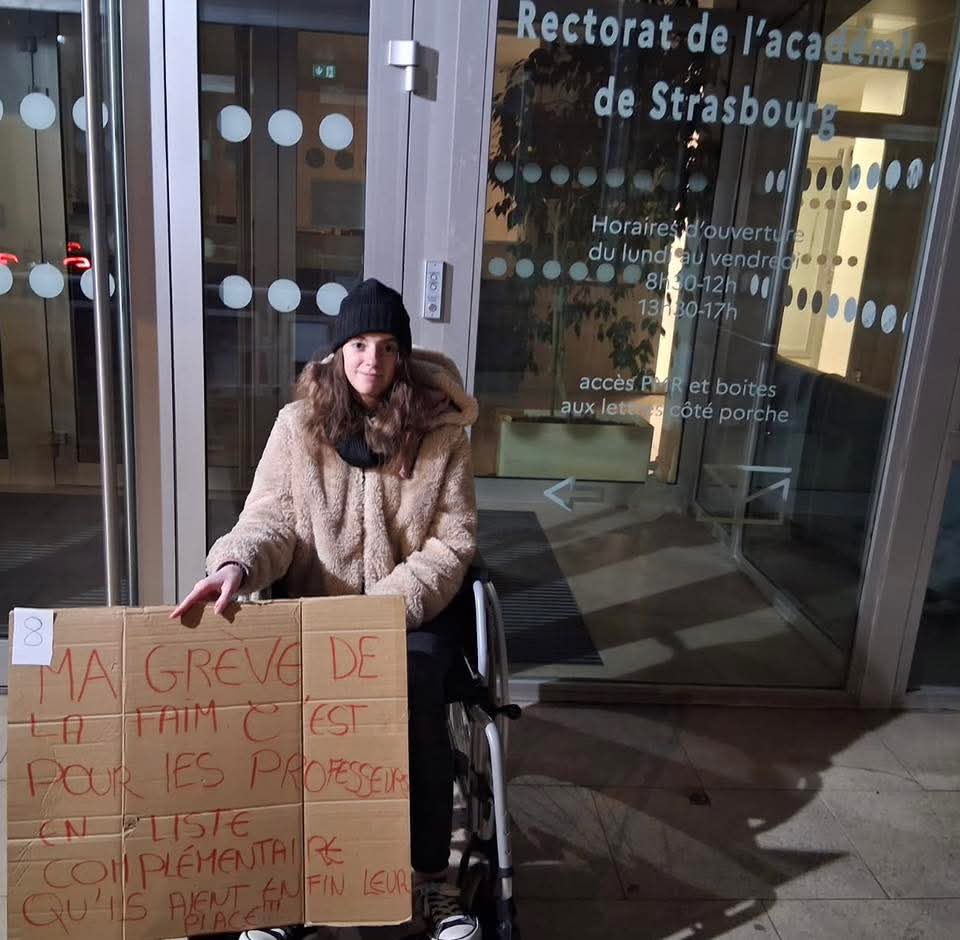 Rectorat de l'académie
de Strasbourg
Horaires d'ouverture
du lundi au vendredi
8h30-12h
13h30-17h
accès PMR et boites
aux lettres côté porche
8
MA GRÈVE DE
LA FAIM C'EST
POUR LES PROFESSEURS
EN LISTE
COMPLÉMENTAIRE
QU'ILS AIENT ENFIN LEUR
PLACE!!!